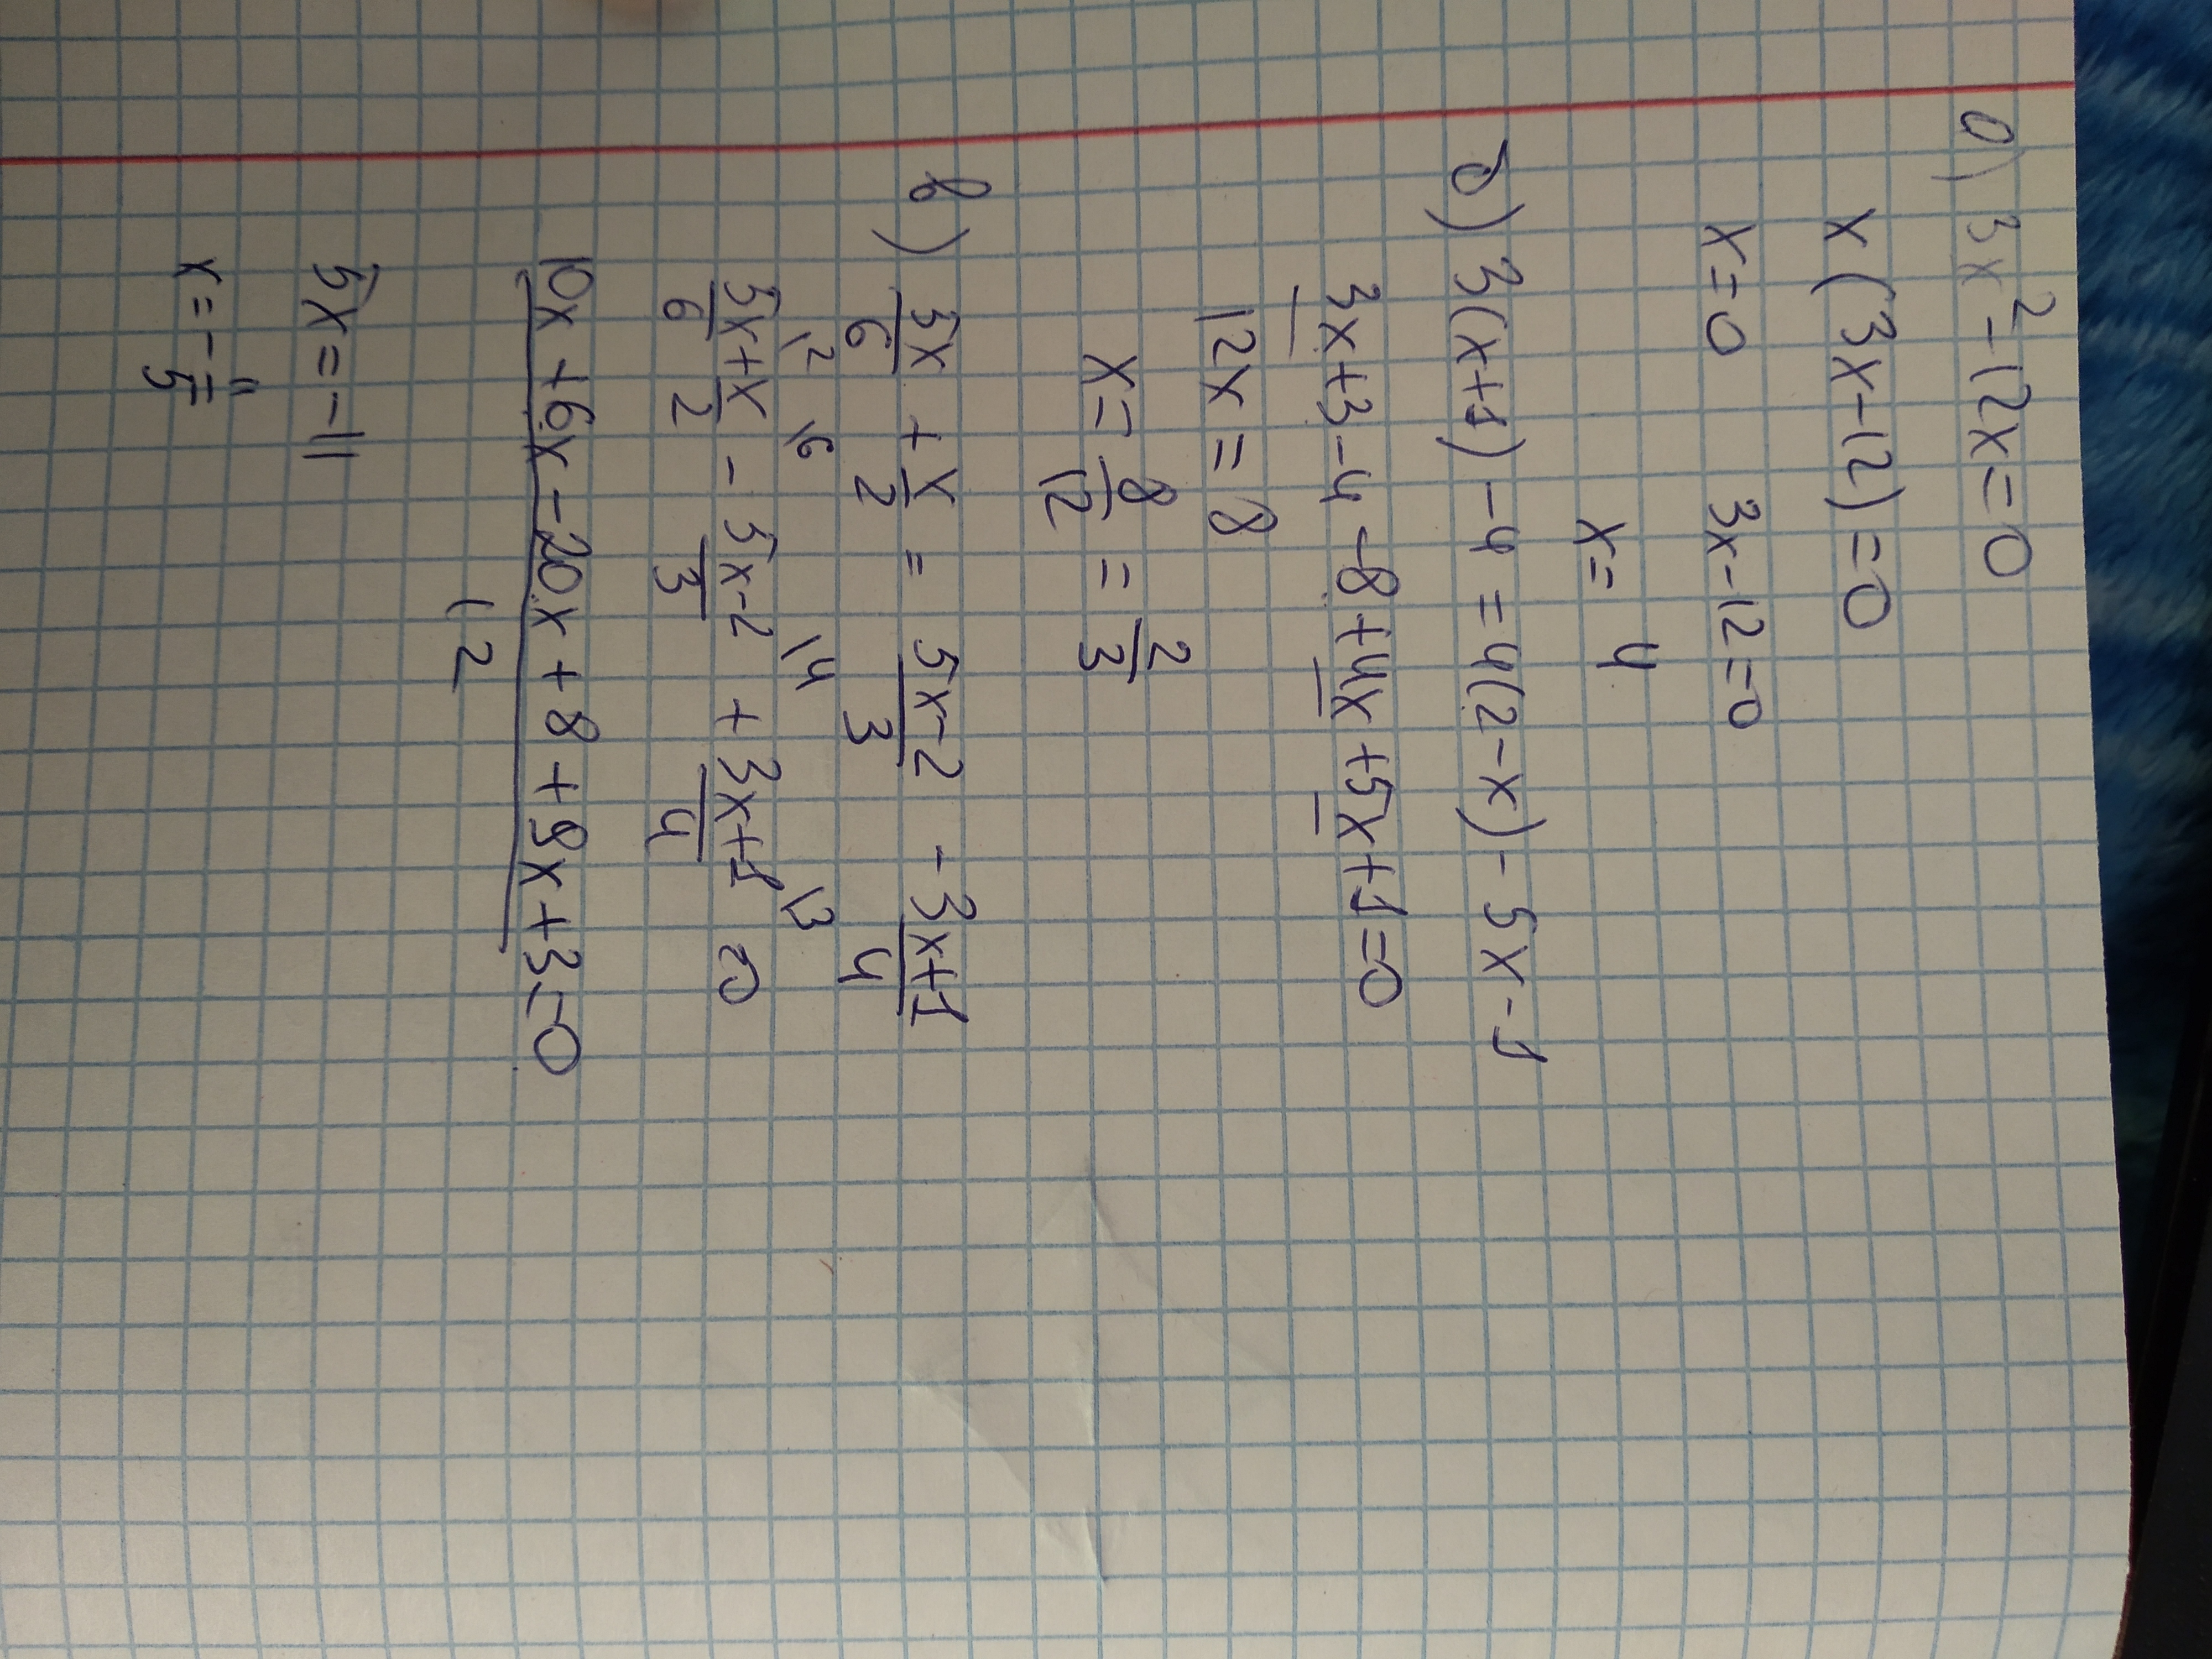 а) 3x² - 12x = 0
x(3x - 12) = 0
x = 0 3x - 12 = 0
x = 4
б) 3(x+1) - 4 = 4(2 - x) - 5x - 1
3x + 3 - 4 - 8 + 4x + 5x + 1 = 0
12x = 8
x = 8/12 = 2/3
в) 5x/6 + x/2 = 5x-2/3 - 3x+1/4
5x/6 \2 + x/2 \6 - 5x-2/3 \4 + 3x+1/4 \3 = 0
10x + 6x - 20x + 8 + 9x + 3 = 0
12
5x = -11
x = - 11/5